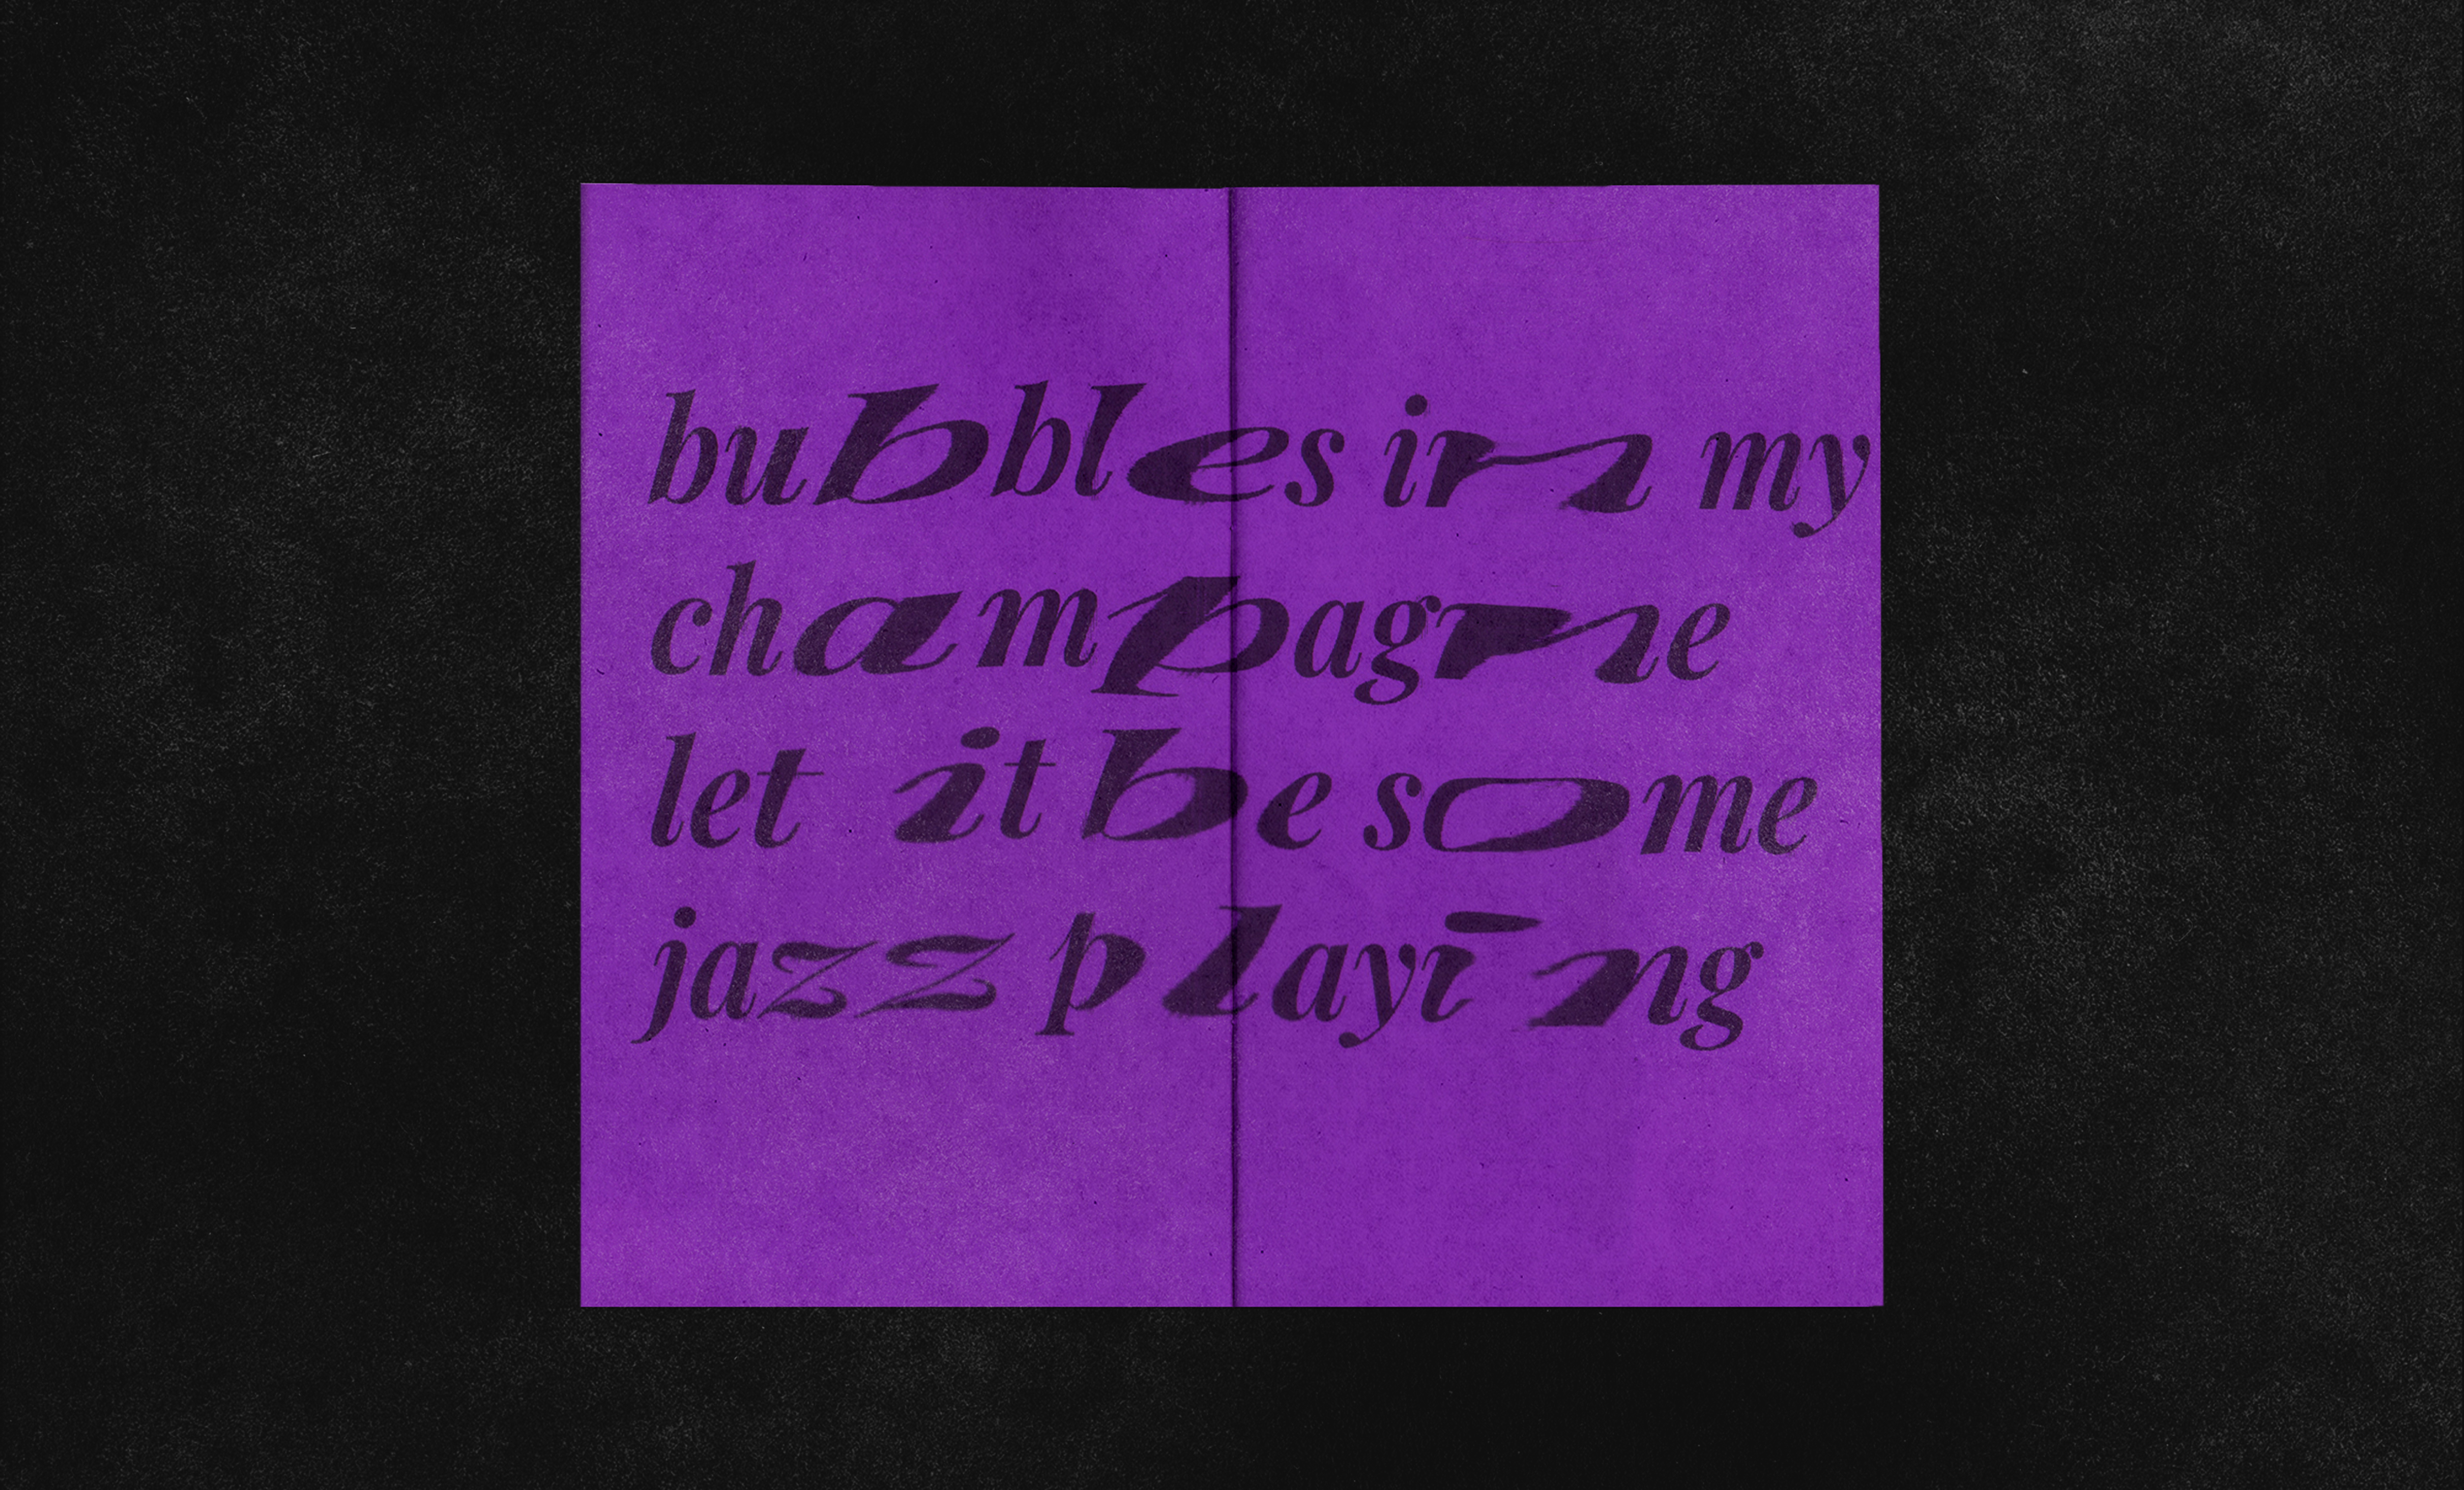 bubbles in my
champagne
let it be some
jazz playing